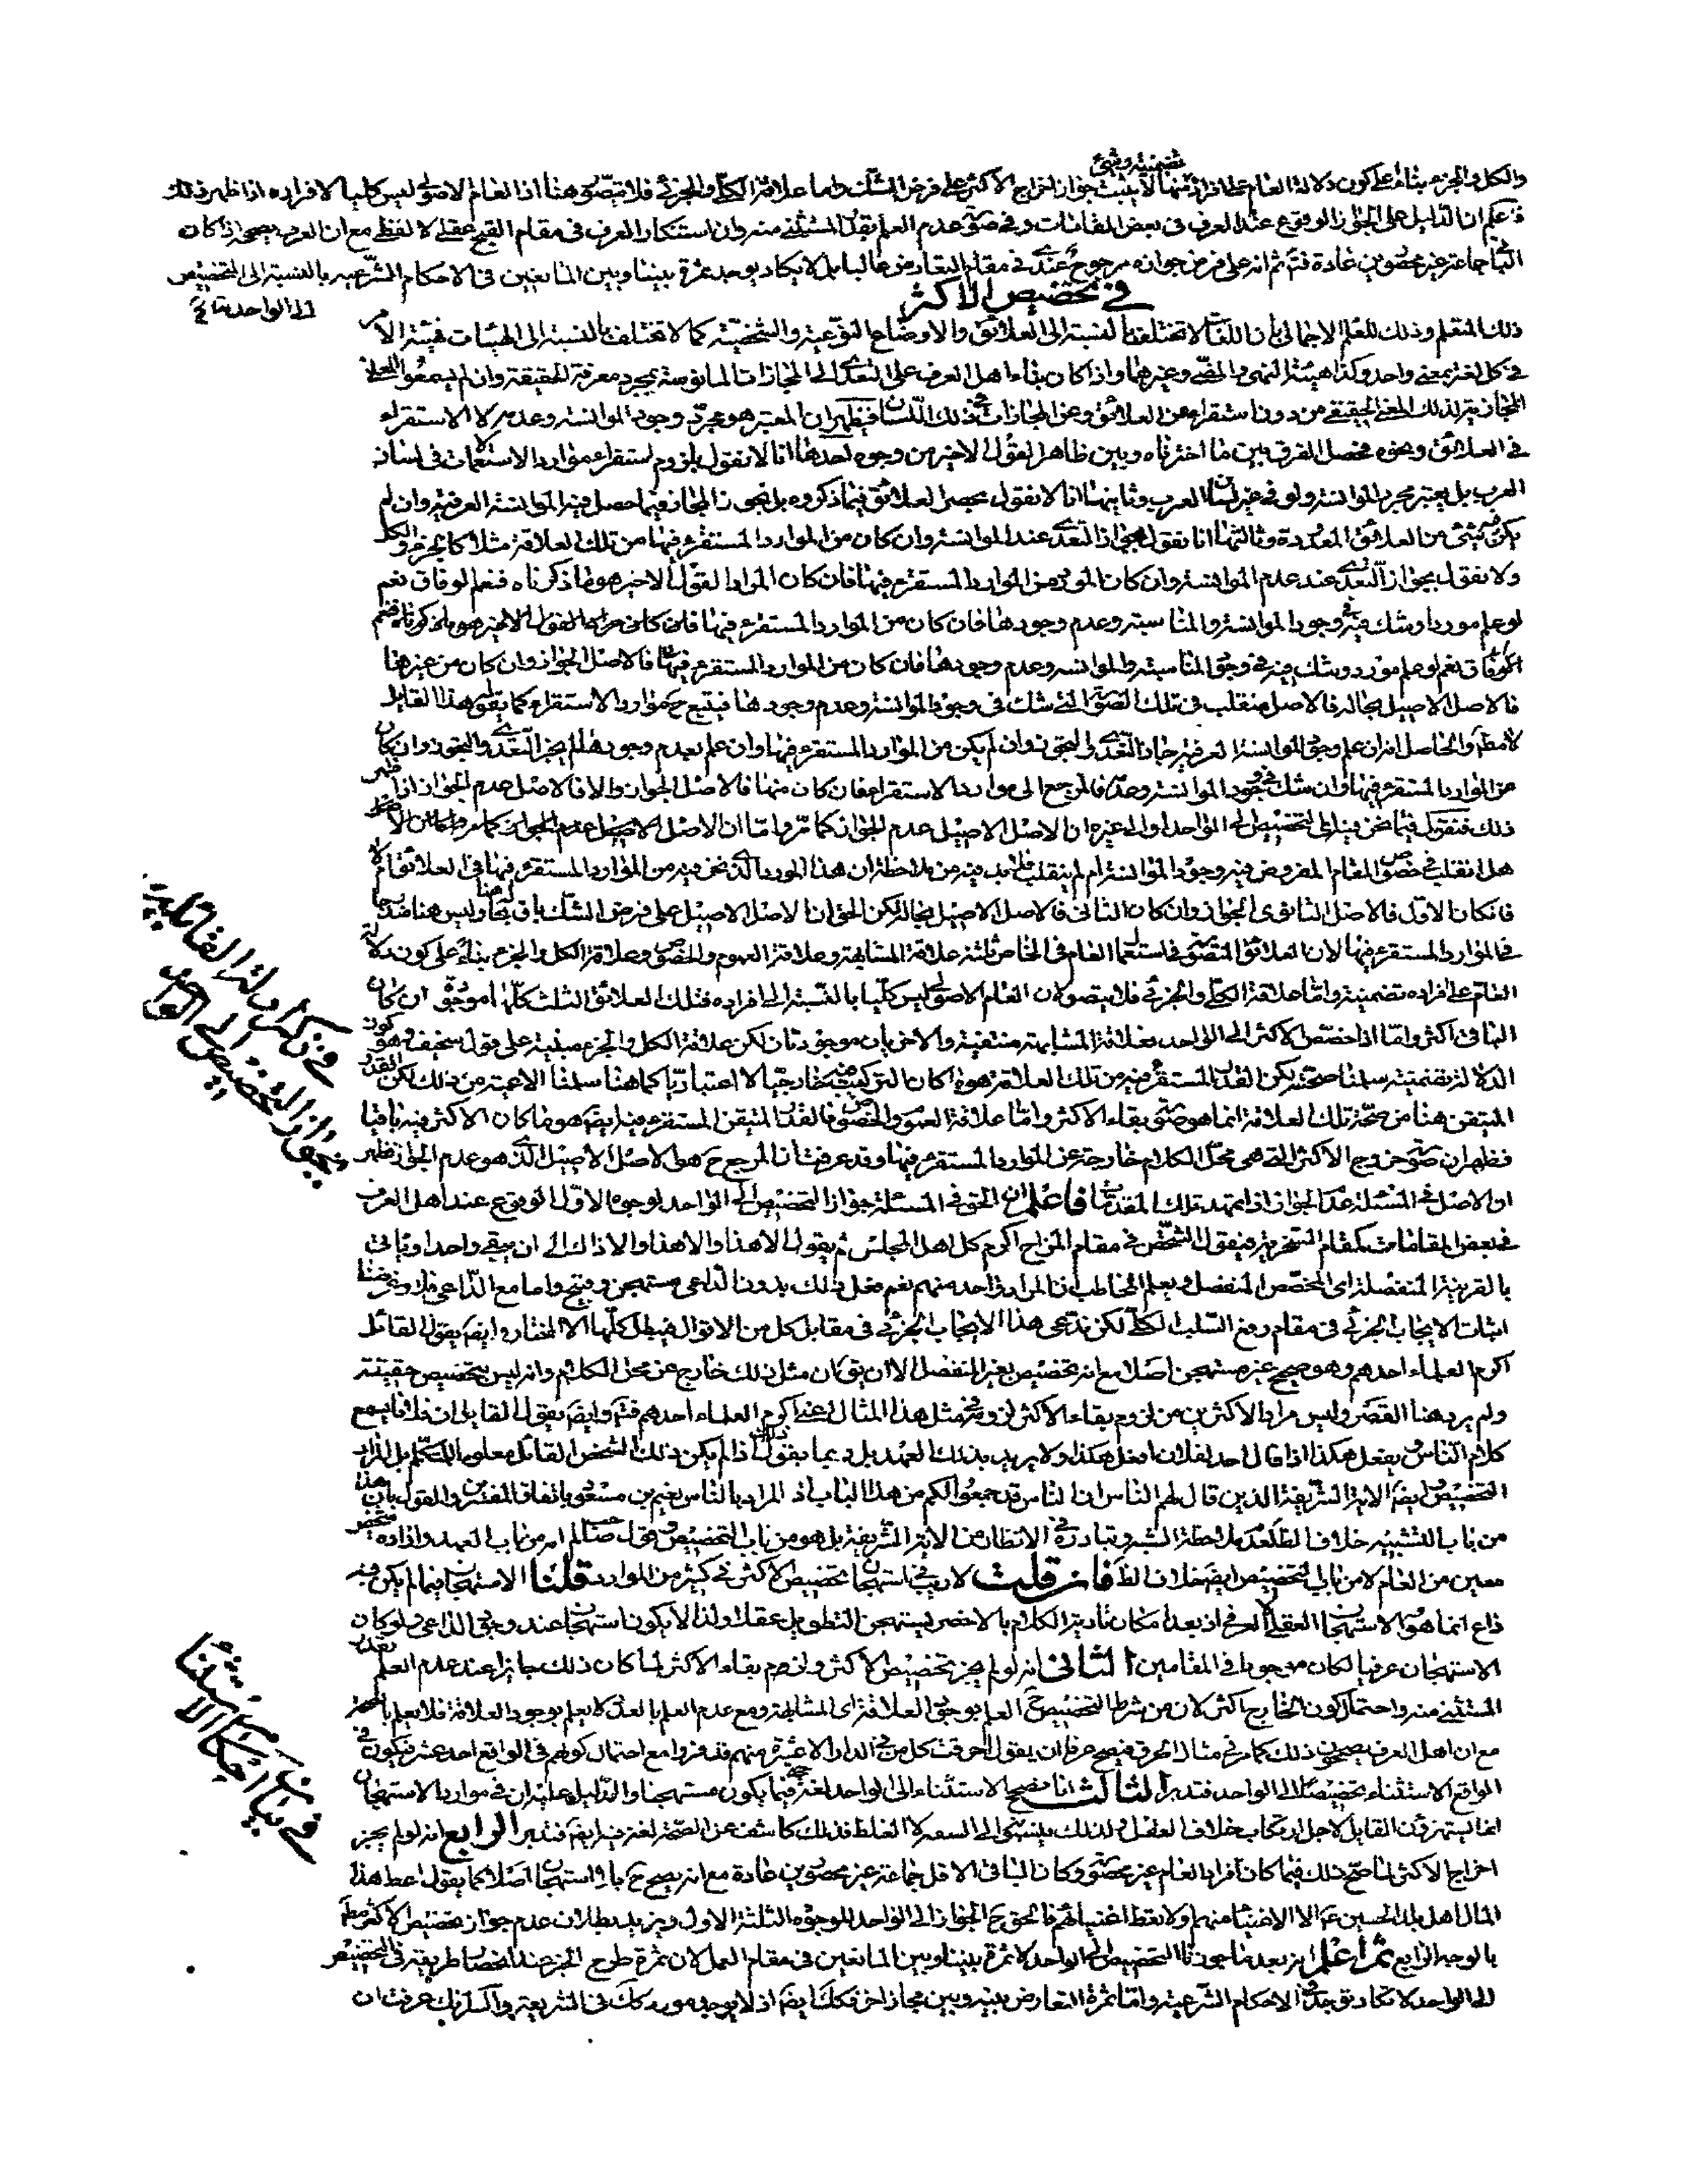 تضمنية وشئ
والكل والجزء بناء على كون دلالة العام على افراده منها لا يثبت جواز اخراج الاكثر على فرض الشك واما علاقة الكلي والجزئي فلا يتصور هنا اذ العام الاصولى ليس كليا لافراده اذا ظهر ذلك
فاعلم ان الدليل على الجواز الوقوع عند العرف فى بعض المقامات وفى صورة عدم العلم بقدر المستثنى منه وان استنكار العرف فى مقام القبح عقلى لا لفظى مع ان العرف يصححه اذا كان
الباقى جماعة غير محصورين عادة فتم ثم انه على فرض جوازه مرجوح عندى فى مقام التعارض غالبا بل لا يكاد يوجد ثمرة بيننا وبين المانعين فى الاحكام الشرعيه بالنسبة الى التخصيص
الى الواحد
فى تخصيص الاكثر
ذلك المتعلم وذلك للعلم الاجمالى بان اللغات لا تختلف بالنسبة الى العلائق والاوضاع النوعية والشخصية كما لا تختلف بالنسبة الى الهيئات فهيئة الامر
فى كل لغة بمعنى واحد وكذا هيئة النهى والمضى وغيرهما واذا كان بناء اهل العرف على التعدى الى المجازات المانوسة بمجرد معرفة الحقيقة وان لم يسمعوا المعانى
المجازية لذلك المعنى الحقيقى من دون استقراء عن العلائق وعن المجازات فى ذلك اللسان فيظهر ان المعتبر هو مجرد وجود الموانسة وعدمه لا الاستقراء
فى العلائق ونحوه فحصل الفرق بين ما اخترناه وبين ظاهر القول الاخير من وجوه احدها انا لا نقول بلزوم استقراء موارد الاستعمالات فى لسان
العرب بل يعتبر مجرد الموانسة ولو فى غير لسان العرب وثانيها انا لا نقول بحصر العلائق فيما ذكروه بل نجوز المجاز فيما حصل فيه الموانسة العرفية وان لم
يكن شئ من العلائق المعدودة وثالثها انا نقول بجواز التعدى عند الموانسة وان كان من الموارد المستقرء فيها من تلك العلاقة مثلا كالجزء والكل
ولا نقول بجواز التعدى عند عدم الموانسة وان كان المورد من الموارد المستقرء فيها فان كان المراد القول الاخير هو ما ذكرناه فنعم الوفاق نعم
لو علم موردا وشك فيه فى وجود الموانسة والمناسبة وعدم وجودها فان كان من الموارد المستقرء فيها فان كان مراد القول الاخير هو ما ذكرناه فنعم
الوفاق نعم لو علم مورد وشك فيه فى وجود المناسبة والموانسه وعدم وجودها فان كان من الموارد المستقرء فيها فالاصل الجواز وان كان من غيرها
فالاصل الاصيل بحاله فالاصل منقلب فى تلك الصورة التى شك فى وجود الموانسة وعدم وجودها فيتبع ح موارد الاستقراء كما يقوله هذا القائل
لا مطلقا والحاصل انه ان علم وجود الموانسة العرفية جاز التعدى والتجوز وان لم يكن من الموارد المستقرء فيها وان علم بعدم وجودها لم يجز التعدى والتجوز وان كان
من الموارد المستقرء فيها وان شك فى وجود الموانسة وعدمها فالمرجع الى موارد الاستقراء فان كان منها فالاصل الجواز والا فالاصل عدم الجواز اذا ظهر
ذلك فنقول فيما نحن فيه اى التخصيص الى الواحد او الى غيره ان الاصل الاصيل عدم الجواز كما مر واما ان الاصل الاصيل عدم الجواز كما مر
هل انقلب فى خصوص المقام المفروض فيه وجود الموانسة ام لم ينقلب فلا بد فيه من ملاحظة ان هذا المورد الذى نحن فيه من الموارد المستقرء فيها فى العلائق ام لا
فان كان الاول فالاصل الثانوى الجواز وان كان الثانى فالاصل الاصيل بحاله لكن الحق ان الاصل الاصيل على فرض الشك باق بحاله وليس هنا
فى الموارد المستقرء فيها لان العلائق المتصورة فى استعمال العام فى الخاص ثلثة علاقة المشابهة وعلاقة العموم والخصوص وعلاقة الكل والجزء بناء على كون دلالة
العام على افراده تضمنية واما علاقة الكلى والجزئى فلا يتصور لان العام الاصولى ليس كليا بالنسبة الى افراده فتلك العلائق الثلث كلها موجود ان كان
الباقى اكثر واما اذا خصص الاكثر الى الواحد فعلاقة المشابهة منتفية والاخريان موجودتان لكن علاقة الكل والجزء مبنية على قول سخيف وهو كون
الدلالة تضمنية سلمنا صحته لكن القدر المستقرء فيه من تلك العلاقة هو ما كان التركيب فيه خارجيا لا اعتباريا كما هنا سلمنا الاعمية من ذلك لكن القدر
المتيقن هنا من صحة تلك العلاقة انما هو صورة بقاء الاكثر واما علاقة العموم والخصوص فالقدر المتيقن المستقرء فيه ايضا هو ما كان الاكثر فيه باقيا
فظهر ان صورة خروج الاكثر التى هى محل الكلام خارجة عن الموارد المستقرء فيها وقد عرفت ان المرجع ح هو الاصل الاصيل الذى هو عدم الجواز فظهر
ان الاصل فى المسئلة عدم الجواز اذا تمهد تلك المقدمات فاعلم ان الحق فى المسئلة جواز التخصيص الى الواحد لوجوه الاول الوقوع عند اهل العرف
فى بعض المقامات كمقام السخرية فيقول الشخص فى مقام المزاح اكرم كل اهل المجلس ثم يقول الا هذا والا هذا والا ذاك الى ان يبقى واحد او ياتى
بالقرينة المنفصلة اى المخصص المنفصل ويعلم المخاطب ان المراد واحد منهم نعم فعل ذلك بدون الداعى مستهجن وقبيح واما مع الداعى فلا وغرضنا
اثبات الايجاب الجزئى فى مقام رفع السلب الكلى لكن ندعى هذا الايجاب الجزئى فى مقابل كل من الاقوال فيبطل كلها الا المختار وايضا يقول القائل
اكرم العلماء احدهم وهو صحيح غير مستهجن اصلا مع انه تخصيص بغير المنفصل الا ان يق ان مثل ذلك خارج عن محل الكلام وانه ليس بتخصيص حقيقته
ولم يرد هنا القصر وليس مراد الاكثرين من لزوم بقاء الاكثر لزومه فى مثل هذا المثال اعنى اكرم العلماء احدهم فتم وايضا يقول القائل ان فلانا يسمع
كلام الناس ويفعل هكذا اذا قال احد لفلان افعل هكذا ولا يريد بذلك العهد بل ربما يقول ذلك اذا لم يكن ذلك الشخص القائل معلوما للمتكلم بل المراد
التخصيص ايضا الاية الشريفة الذين قال لهم الناس ان الناس قد جمعوا لكم من هذا الباب اذ المراد بالناس نعيم بن مسعود باتفاق المفسرين والقول بان هذا
من باب التشبيه خلاف الظ بعد ملاحظة السير وتبادره فى الانظار من الاية الشريفة بل هو من باب التخصيص وقول صاحب لم انه من باب العهد واراده شخص
معين من العام لا من باب التخصيص ايضا خلاف الظ فان قلت لا ريب فى استهجان تخصيص الاكثر فى كثير من الموارد قلنا الاستهجان فيما لم يكن فيه
داع انما هو الاستهجان العقلى لا العرفى اذ بعد امكان تادية الكلام بالاخصر يستهجن التطويل عقلا ولذا لا يكون استهجانا عند وجود الداعى ولو كان
الاستهجان عرفيا لكان موجودا فى المقامين الثانى انه لو لم يجز تخصيص الاكثر ولزم بقاء الاكثر لما كان ذلك جايزا عند عدم العلم بقدر
المستثنى منه واحتمال كون الخارج اكثر لان من شرط التخصيص ح العلم بوجود العلاقة اى المشابهة ومع عدم العلم بالعدد لا يعلم بوجود العلاقة فلا يعلم بالصحة
مع ان اهل العرف يصححون ذلك كما مر فى مثال الحرق فيصح عرفا ان يقول احرقت كل من فى الدار الا عشرة منهم قد فروا مع احتمال كونهم فى الواقع احد عشر فيكون فى
الواقع الاستثناء تخصيصا الى الواحد فتدبر الثالث انا نصحح الاستثناء الى الواحد لغة فيما يكون مستهجنا والدليل عليه ان فى موارد الاستهجان
انما يستهزؤن القائل لاجل ارتكاب خلاف العقل ولذلك ينسبونه الى السفه لا الغلط فذلك كاشف عن الصحة لغة فيه ايضا فتدبر الرابع انه لو لم يجز
اخراج الاكثر لما صح ذلك فيما كان افراد العام غير محصور وكان الباقى الاقل جماعة غير محصورين عادة مع انه يصح ح بلا استهجان اصلا كما يقول اعط هذا
المال اهل بلد الحسين ع الا الاغنياء منهم ولا تعط اغنيائهم فالحق ح الجواز الى الواحد للوجوه الثلثة الاول ويزيد بطلان عدم جواز تخصيص الاكثر مطلقا
بالوجه الرابع ثم اعلم انه بعد ما جوزنا التخصيص الى الواحد لا ثمرة بيننا وبين المانعين فى مقام العمل لان ثمرة طرح الخبر عند انحصار طريقه فى التخصيص
الى الواحد لا تكاد توجد فى الاحكام الشرعية واما ثمرة التعارض بينه وبين مجاز اخر فكك ايضا اذ لا يوجد مورد كك فى الشريعة والسر انك عرفت ان
فى ذكر ادلة القائلين
بجواز التخصيص الى الواحد
فى بيان احكام الاستثناء